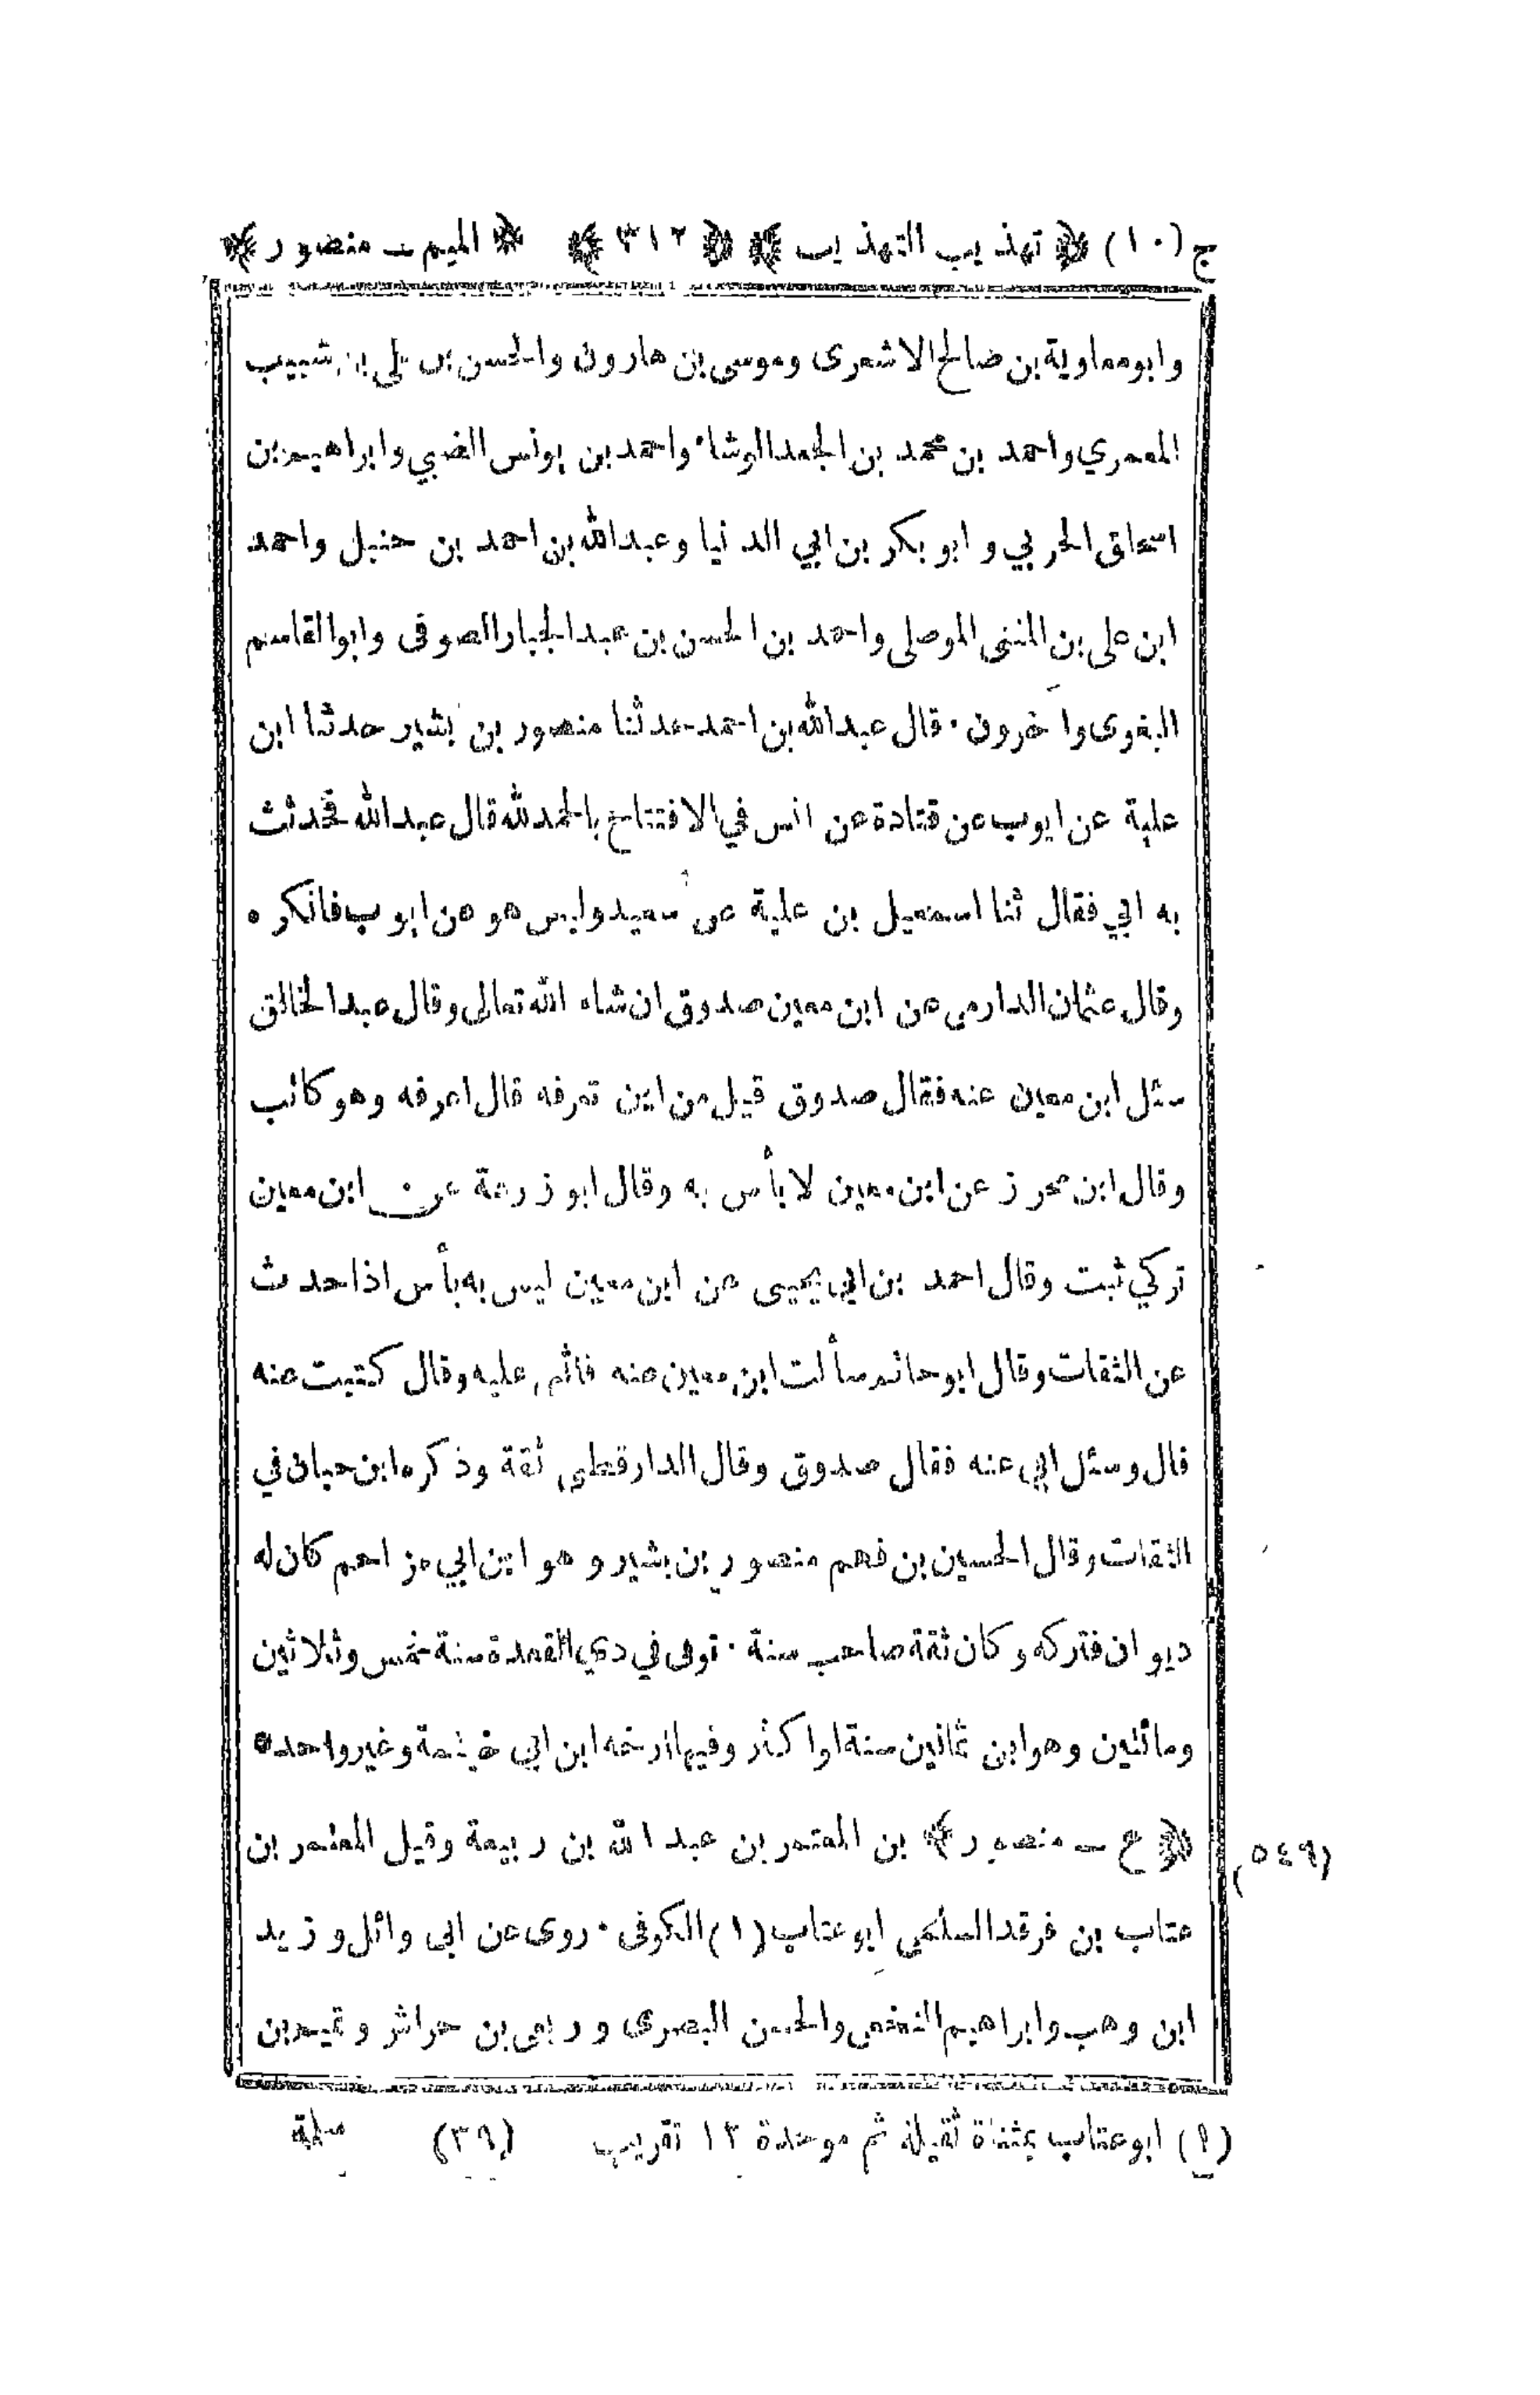 ج (١٠) ﴿ تهذيب التهذيب ﴾ ﴿ ٣١٢ ﴾ ﴿ الميم ــ منصور ﴾
وابومعاوية بن صالح الاشعرى وموسى بن هارون والحسن بن على بن شبيب
المعمري واحمد بن محمد بن الجعد الوشاء واحمد بن يونس الضبي وابراهيم بن
اسحاق الحربي و ابو بكر بن ابي الدنيا وعبدالله بن احمد بن حنبل واحمد
ابن على بن المثنى الموصلى واحمد بن الحسن بن عبد الجبار الصوفى وابوالقاسم
البغوى وآخرون ٠ قال عبدالله بن احمد حدثنا منصور بن بشير حدثنا ابن
علية عن ايوب عن قتادة عن انس في الافتتاح بالحمد لله قال عبدالله فحدثت
به ابي فقال ثنا اسمعيل بن علية عن سعيد وليس هو عن ايوب فانكره
وقال عثمان الدارمى عن ابن معين صدوق ان شاء الله تعالى وقال عبدالخالق
سئل ابن معين عنه فقال صدوق قيل من اين تعرفه قال اعرفه وهو كاتب
وقال ابن محرز عن ابن معين لا بأس به وقال ابو زرعة عن ابن معين
تركي ثبت وقال احمد بن ابي يحيى عن ابن معين ليس به بأس اذا حدث
عن الثقات وقال ابو حاتم سألت ابن معين عنه فاثنى عليه وقال كتبت عنه
قال وسئل ابي عنه فقال صدوق وقال الدارقطنى ثقة وذكره ابن حبان في
الثقات وقال الحسين بن فهم منصور بن بشير و هو ابن ابي مزاحم كان له
ديوان فتركه و كان ثقة صاحب سنة ٠ توفى في ذي القعدة سنة خمس وثلاثين
ومائتين وهو ابن ثمانين سنة او اكثر وفيها ارخه ابن ابي خيثمة وغير واحد ٥
﴿ ع ــ منصور ﴾ بن المعتمر بن عبد الله بن ربيعة وقيل المعتمر بن
(٥٤٩)
عتاب بن فرقد السلمي ابو عتاب (١) الكوفى ٠ روى عن ابى وائل و زيد
ابن وهب وابراهيم النخعى والحسن البصرى و ربعى بن حراش و تميم بن
(١) ابو عتاب بمثناة ثقيلة ثم موحدة ١٢ تقريب (٣٩) سلمة